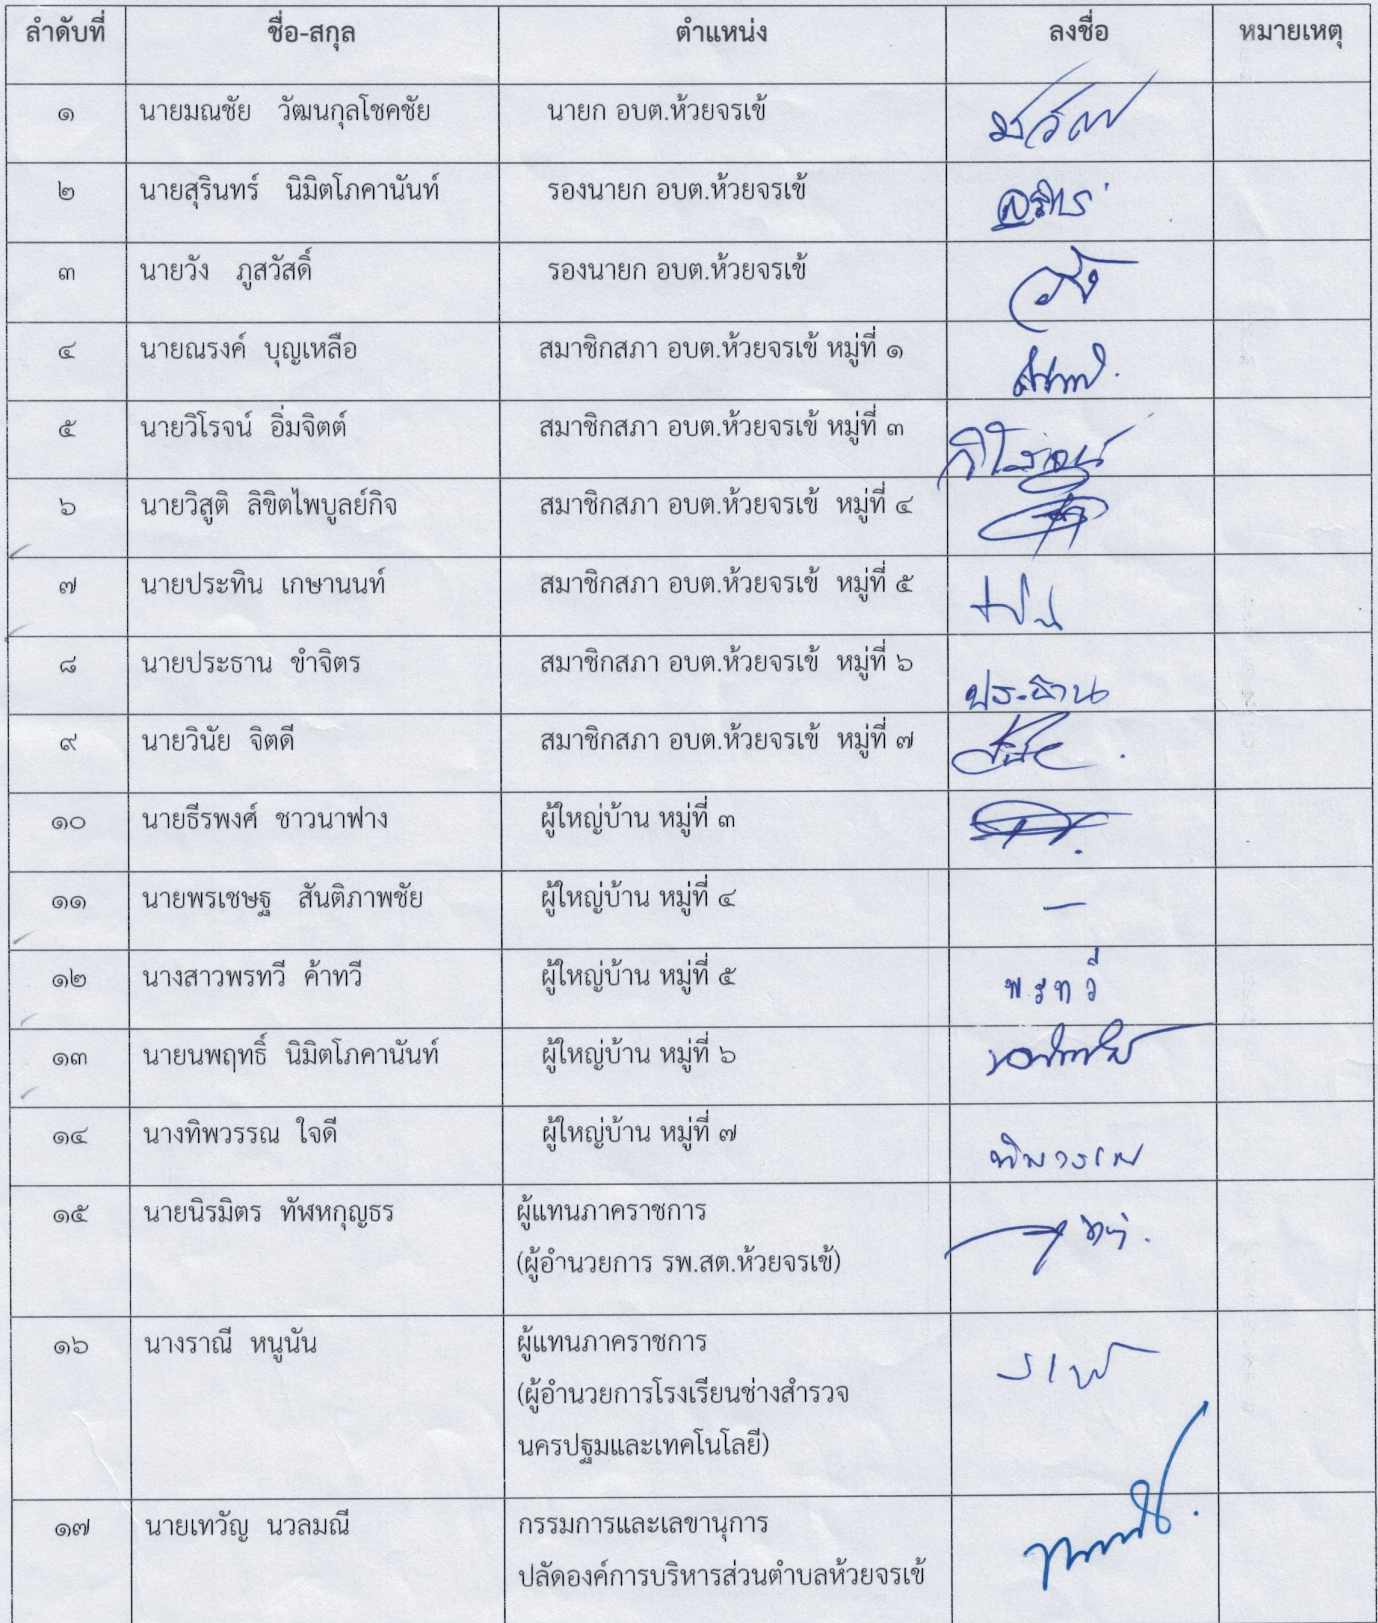 ลำดับที่ ชื่อ-สกุล ตำแหน่ง ลงชื่อ หมายเหตุ
๑ นายมณชัย วัฒนกุลโชคชัย นายก อบต.ห้วยจรเข้
๒ นายสุรินทร์ นิมิตโภคานันท์ รองนายก อบต.ห้วยจรเข้
๓ นายวัง ภูสวัสดิ์ รองนายก อบต.ห้วยจรเข้ วัง
๔ นายณรงค์ บุญเหลือ สมาชิกสภา อบต.ห้วยจรเข้ หมู่ที่ ๑
๕ นายวิโรจน์ อิ่มจิตต์ สมาชิกสภา อบต.ห้วยจรเข้ หมู่ที่ ๓ วิโรจน์
๖ นายวิสูติ ลิขิตไพบูลย์กิจ สมาชิกสภา อบต.ห้วยจรเข้ หมู่ที่ ๔
๗ นายประทิน เกษานนท์ สมาชิกสภา อบต.ห้วยจรเข้ หมู่ที่ ๕
๘ นายประธาน ขำจิตร สมาชิกสภา อบต.ห้วยจรเข้ หมู่ที่ ๖ ประธาน
๙ นายวินัย จิตดี สมาชิกสภา อบต.ห้วยจรเข้ หมู่ที่ ๗
๑๐ นายธีรพงศ์ ชาวนาฟาง ผู้ใหญ่บ้าน หมู่ที่ ๓
๑๑ นายพรเชษฐ สันติภาพชัย ผู้ใหญ่บ้าน หมู่ที่ ๔ –
๑๒ นางสาวพรทวี ค้าทวี ผู้ใหญ่บ้าน หมู่ที่ ๕ พรทวี
๑๓ นายนพฤทธิ์ นิมิตโภคานันท์ ผู้ใหญ่บ้าน หมู่ที่ ๖
๑๔ นางทิพวรรณ ใจดี ผู้ใหญ่บ้าน หมู่ที่ ๗
๑๕ นายนิรมิตร ทัฬหกุญธร ผู้แทนภาคราชการ
(ผู้อำนวยการ รพ.สต.ห้วยจรเข้)
๑๖ นางราณี หนูนัน ผู้แทนภาคราชการ
(ผู้อำนวยการโรงเรียนช่างสำรวจ
นครปฐมและเทคโนโลยี)
๑๗ นายเทวัญ นวลมณี กรรมการและเลขานุการ
ปลัดองค์การบริหารส่วนตำบลห้วยจรเข้